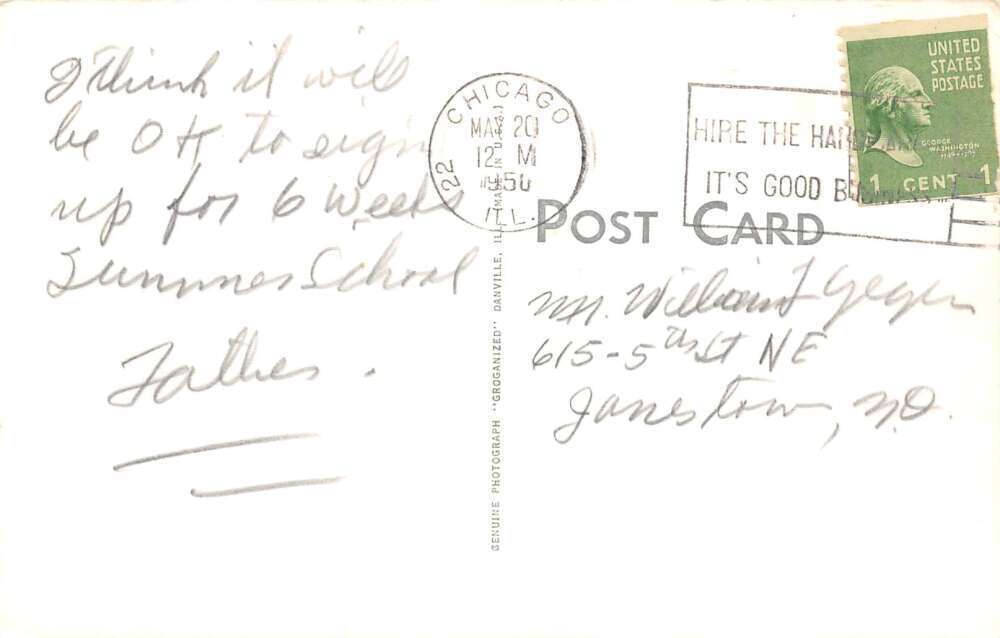 I think it will
be OK to sign
up for 6 weeks
Summer School
Father.
CHICAGO
22
MA 20
12 M
1950
ILL.
HIRE THE
IT'S GOOD
UNITED
STATES
POSTAGE
GEORGE
WASHINGTON
1 CENT 1
POST CARD
GENUINE PHOTOGRAPH "GROGANIZED" DANVILLE, ILL. MADE IN U.S.A.
Mr. William
615-5th St NE
Jamestown, N.D.